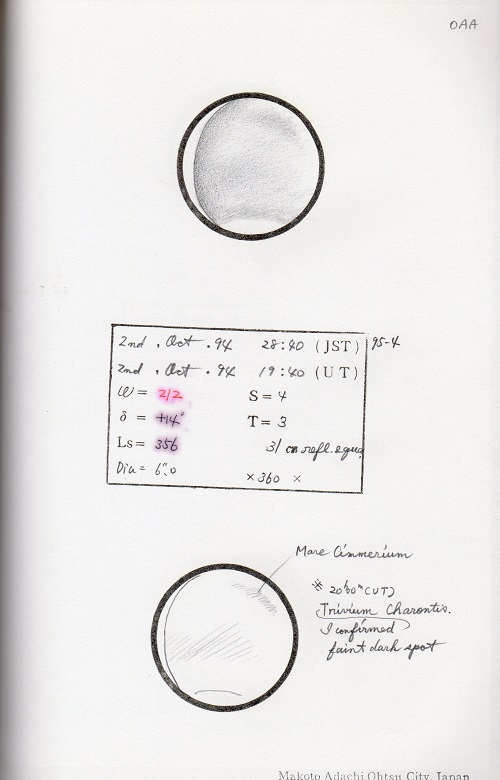 OAA
2nd , Oct . 94 28:40 (JST) 95-4
2nd , Oct . 94 19:40 (UT)
ω = 212 S = 4
δ = +14° T = 3
Ls = 356 31 cm refl. equa
Dia = 6".0 ×360 ×
Mare Cimmerium
※ 20h00m(UT)
Trivium Charontis.
I confirmed
faint dark spot
Makoto Adachi Ohtsu City, Japan